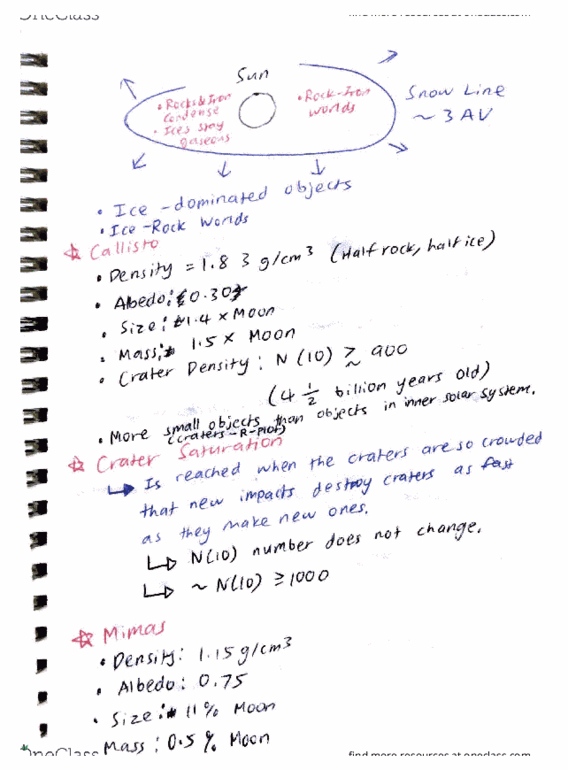 OneClass find more resources at oneclass.com
Sun
• Rocks & Iron condense
• Ices stay gaseous
• Rock-Iron worlds
Snow Line
~ 3 AU
• Ice-dominated objects
• Ice-Rock Worlds
☆ Callisto
• Density = 1.83 g/cm³ (Half rock, half ice)
• Albedo: 0.30
• Size: 1.4 x Moon
• Mass: 1.5 x Moon
• Crater Density: N(10) ≳ 900
(4 1/2 billion years old)
• More small objects than objects in inner solar system.
(craters-R-plot)
☆ Crater Saturation
↳ Is reached when the craters are so crowded
that new impacts destroy craters as fast
as they make new ones.
↳ N(10) number does not change.
↳ ~ N(10) ≥ 1000
☆ Mimas
• Density: 1.15 g/cm³
• Albedo: 0.75
• Size: 11% Moon
• Mass: 0.5% Moon
OneClass find more resources at oneclass.com